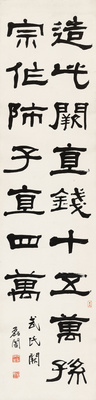 造此闕直錢十五萬孫
宗作師子直四萬
武氏闕